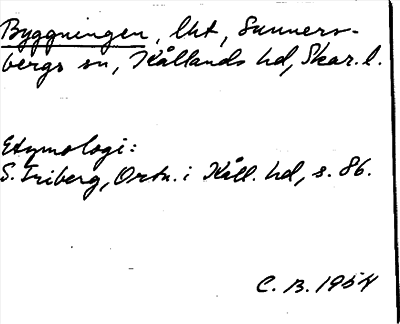 Byggningen, lht, Sunners-
bergs sn, Kållands hd, Skar. l.
Etymologi:
S. Friberg, Ortn. i Kåll. hd, s. 86.
C. B. 1954